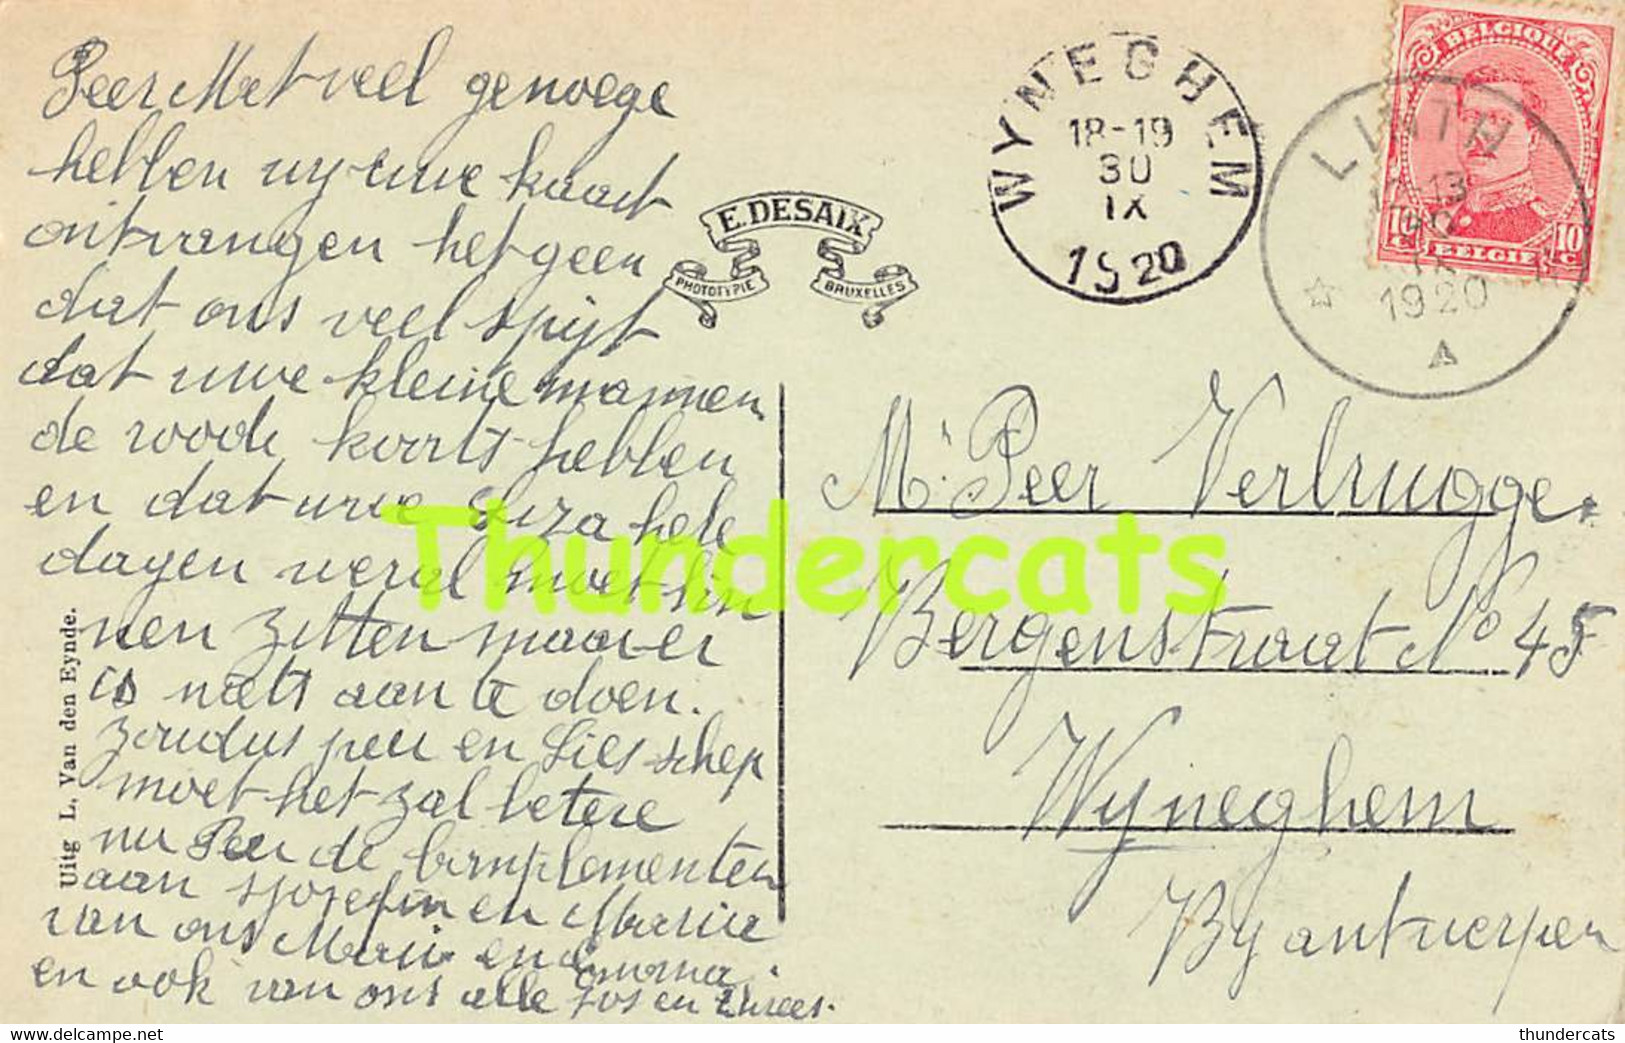 Peer Met veel genoege
hebben wy uwe kaart
ontvangen hetgeen
dat ons veel spijt
dat uwe kleine mannen
de roode koorts hebben
en dat uwe Liza hele
dagen veral moet bin
nen zitten maar er
is niets aan te doen.
zoudus peer en Lies schep
moet het zal betere
nu Peer de komplementen
aan sjosefin en Maria
van ons Marie en Emma
en ook van ons alle Jos en
Uitg L. Van den Eynde.
E. DESAIX
PHOTOTYPIE BRUXELLES
WYNEGHEM
18-19
30
IX
1920
LINTH
13
IX
1920
A
BELGIQUE
10 C 10 C
BELGIE
Mr. Peer Verbrugge.
Bergenstraat No 45
Wyneghem
By antwerpen
Thundercats
www.delcampe.net
thundercats